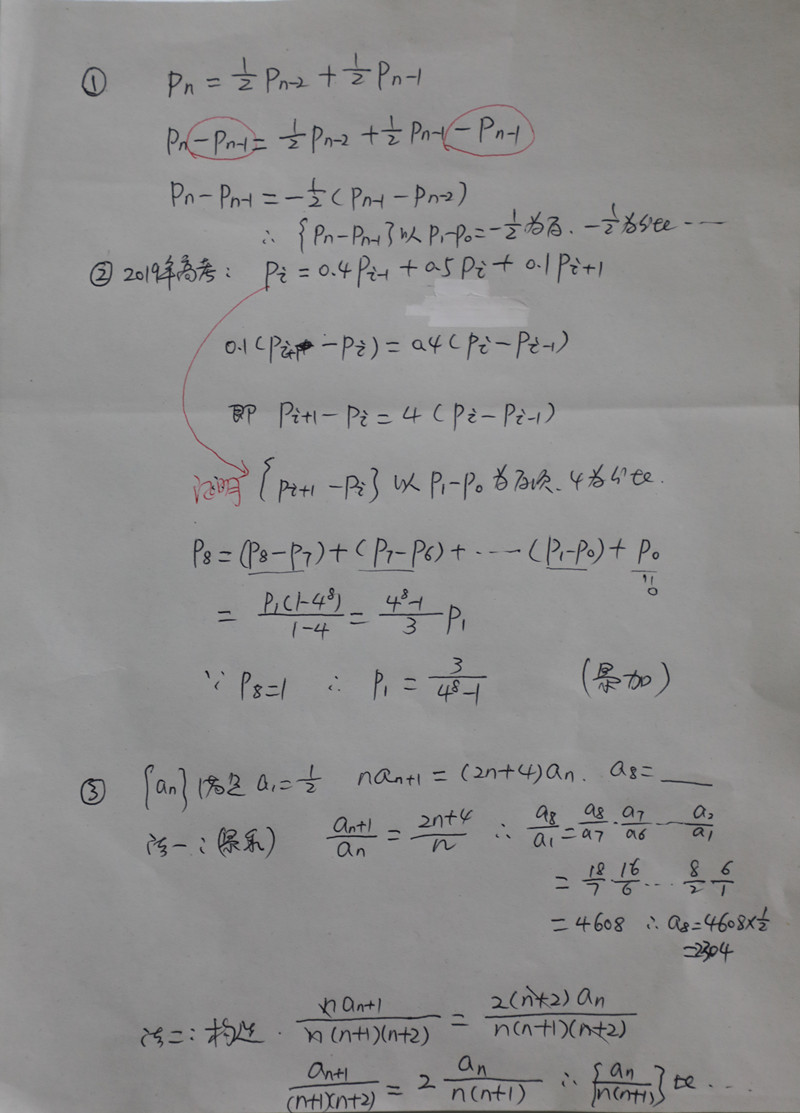 ① Pn = 1/2 Pn-2 + 1/2 Pn-1
Pn - Pn-1 = 1/2 Pn-2 + 1/2 Pn-1 - Pn-1
Pn - Pn-1 = -1/2 (Pn-1 - Pn-2)
∴ {Pn - Pn-1} 以 P1-P0 = -1/2 为首、-1/2 为公比 ……
② 2019年高考: Pi = 0.4Pi-1 + 0.5Pi + 0.1Pi+1
0.1(Pi+1 - Pi) = 0.4(Pi - Pi-1)
即 Pi+1 - Pi = 4(Pi - Pi-1)
证明 {Pi+1 - Pi} 以 P1-P0 为首项、4为公比.
P8 = (P8-P7) + (P7-P6) + …… (P1-P0) + P0
= 0
= P1(1-4^8)/(1-4) = (4^8-1)/3 P1
∵ P8=1 ∴ P1 = 3/(4^8-1) (累加)
③ {an} 满足 a1 = 1/2 nan+1 = (2n+4)an. a8 = ___
法一:(累乘) an+1/an = (2n+4)/n ∴ a8/a1 = a8/a7 · a7/a6 …… a2/a1
= 18/7 · 16/6 … 8/2 · 6/1
= 4608 ∴ a8 = 4608×1/2
= 2304
法二: 构造. nan+1/(n(n+1)(n+2)) = 2(n+2)an/(n(n+1)(n+2))
an+1/((n+1)(n+2)) = 2 an/(n(n+1)) ∴ {an/(n(n+1))} 比 ……